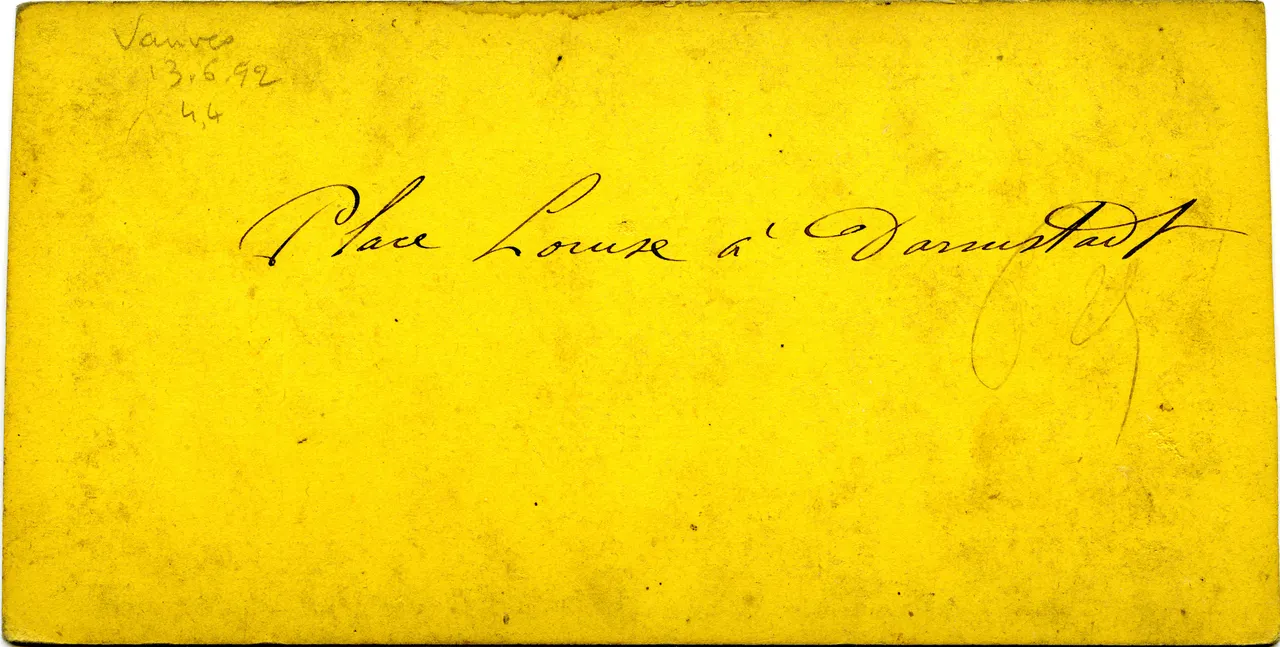 Vanves
13.6.92
4,4
Place Louise à Darmstadt